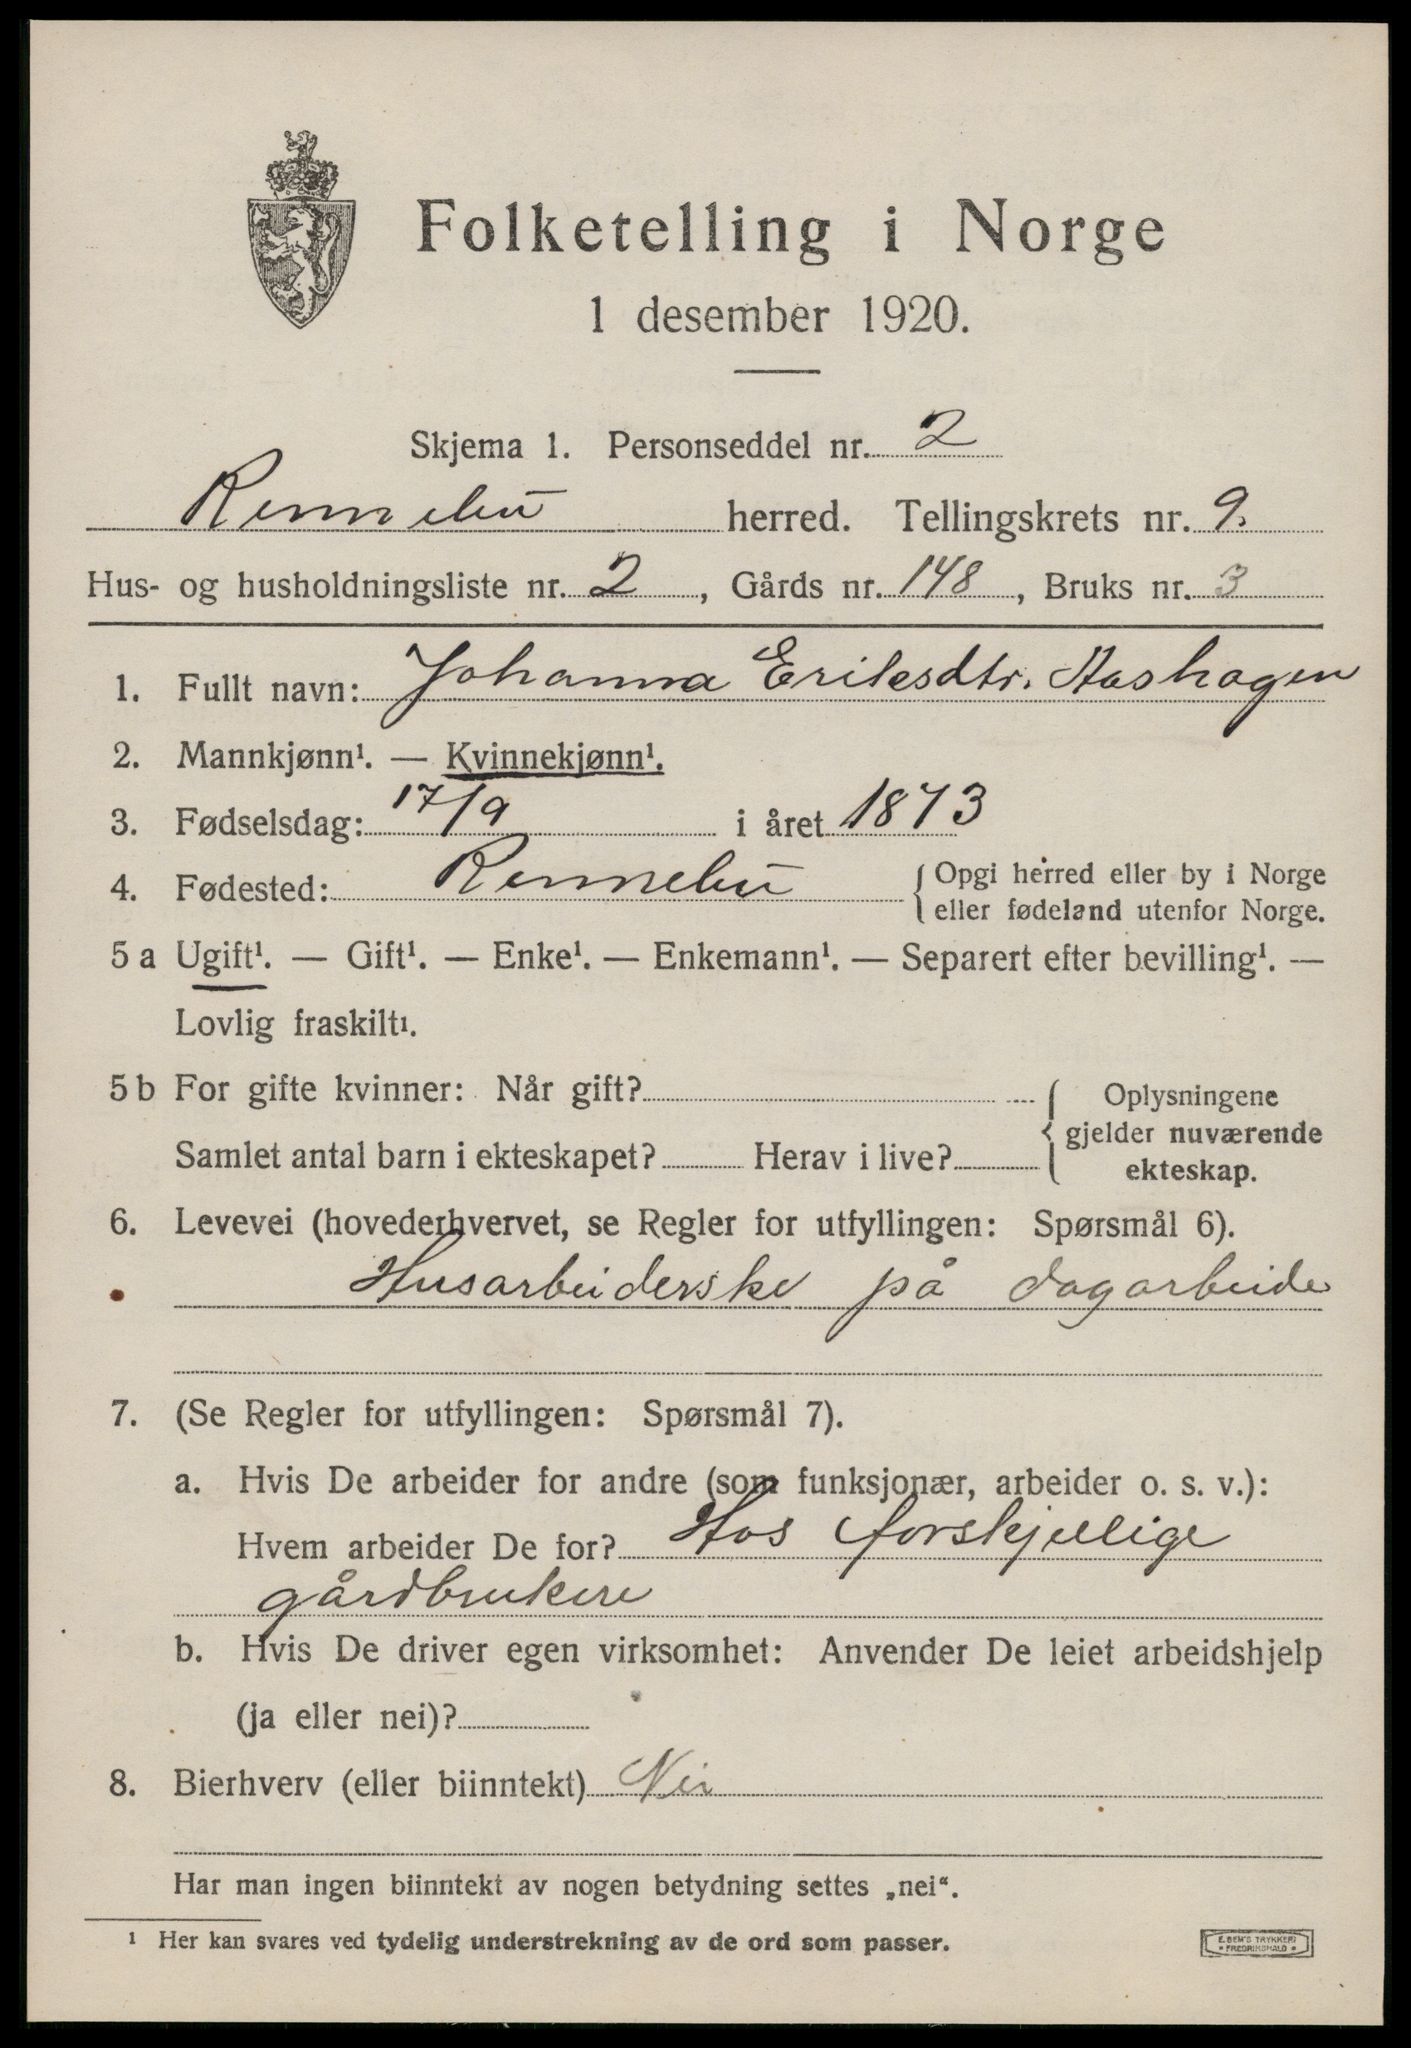 Folketelling i Norge
1 desember 1920.
Skjema 1. Personseddel nr. 2
Rennebu herred. Tellingskrets nr. 9.
Hus- og husholdningsliste nr. 2, Gårds nr. 148, Bruks nr. 3
1. Fullt navn: Johanna Eriksdtr. Aashagen
2. Mannkjønn¹. — Kvinnekjønn¹.
3. Fødselsdag: 17/9 i året 1873
4. Fødested: Rennebu { Opgi herred eller by i Norge
eller fødeland utenfor Norge.
5 a Ugift¹. — Gift¹. — Enke¹. — Enkemann¹. — Separert efter bevilling¹. —
Lovlig fraskilt¹.
5 b For gifte kvinner: Når gift? { Oplysningene
gjelder nuværende
Samlet antal barn i ekteskapet? Herav i live? ekteskap.
6. Levevei (hovederhvervet, se Regler for utfyllingen: Spørsmål 6).
Husarbeiderske på dagarbeide
7. (Se Regler for utfyllingen: Spørsmål 7).
a. Hvis De arbeider for andre (som funksjonær, arbeider o. s. v.):
Hvem arbeider De for? Hos forskjellige
gårdbrukere
b. Hvis De driver egen virksomhet: Anvender De leiet arbeidshjelp
(ja eller nei)?
8. Bierhverv (eller biinntekt) Nei
Har man ingen biinntekt av nogen betydning settes „nei“.
¹ Her kan svares ved tydelig understrekning av de ord som passer.
E. SEM'S TRYKKERI
FREDRIKSHALD